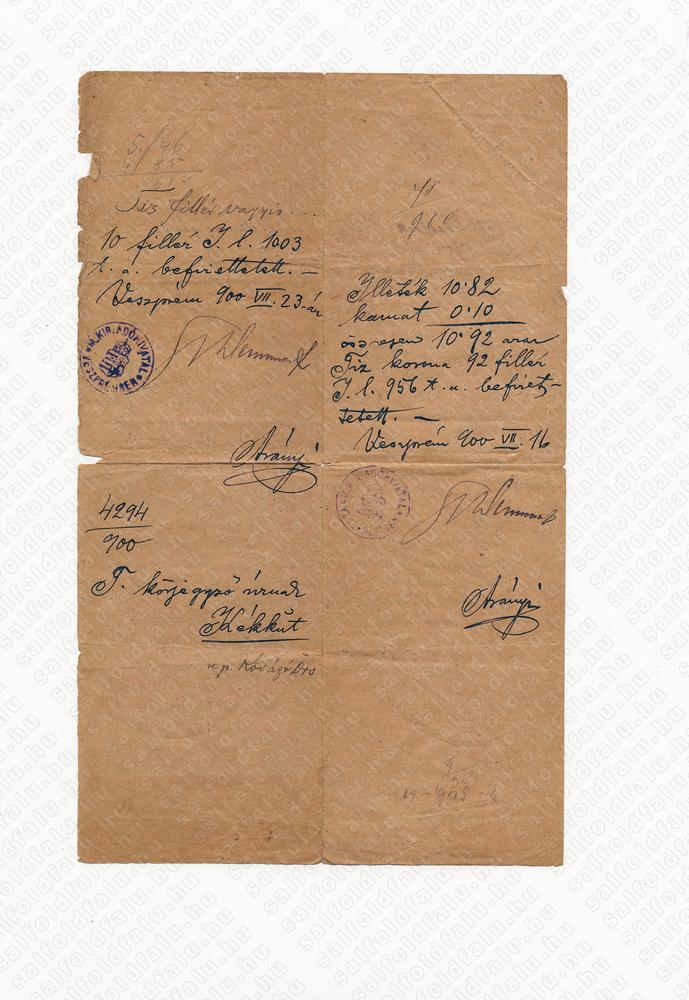 5.46
4 85
Tiz fillér vagyis ....
10 fillér J. l. 1003
t. a. befizettetett. –
Veszprém 900 VII. 23-án
M. KIR. ADÓHIVATAL VESZPRÉMBEN
Arányi
4294
900
T. körjegyző úrnak
Kékkút
u.p. Kővágó Örs
48
960
Illeték 10.82
kamat 0.10
összesen 10.92 azaz
Tiz korona 92 fillér
J. l. 956 t. a. befizet-
tetett. –
Veszprém 900 VII. 16
Arányi
salfoldfalu.hu